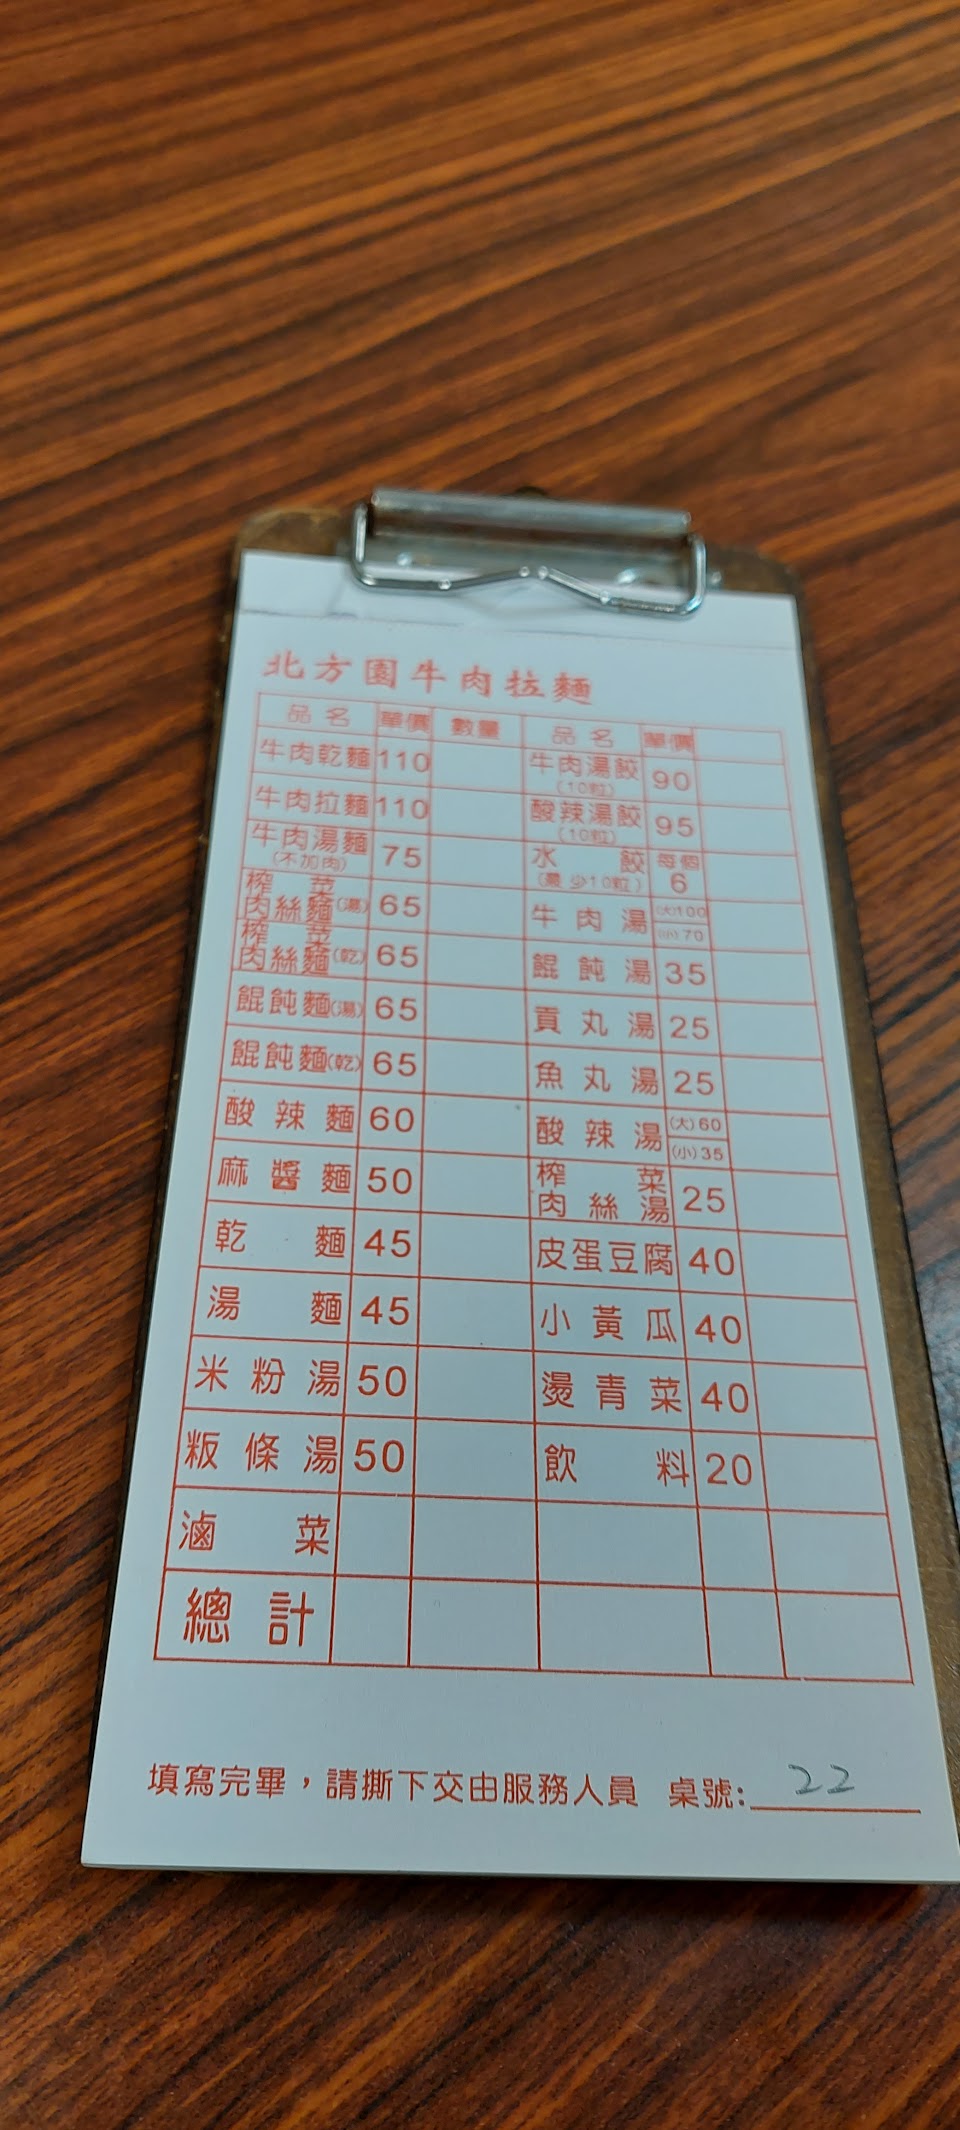 北方園牛肉拉麵
品名 單價 數量 品名 單價
牛肉乾麵 110 牛肉湯餃(10粒) 90
牛肉拉麵 110 酸辣湯餃(10粒) 95
牛肉湯麵(不加肉) 75 水餃(最少10粒) 每個6
榨菜肉絲麵(湯) 65 牛肉湯 (大)100 (小)70
榨菜肉絲麵(乾) 65 餛飩湯 35
餛飩麵(湯) 65 貢丸湯 25
餛飩麵(乾) 65 魚丸湯 25
酸辣麵 60 酸辣湯 (大)60 (小)35
麻醬麵 50 榨菜肉絲湯 25
乾麵 45 皮蛋豆腐 40
湯麵 45 小黃瓜 40
米粉湯 50 燙青菜 40
粄條湯 50 飲料 20
滷菜
總計
填寫完畢,請撕下交由服務人員 桌號:22